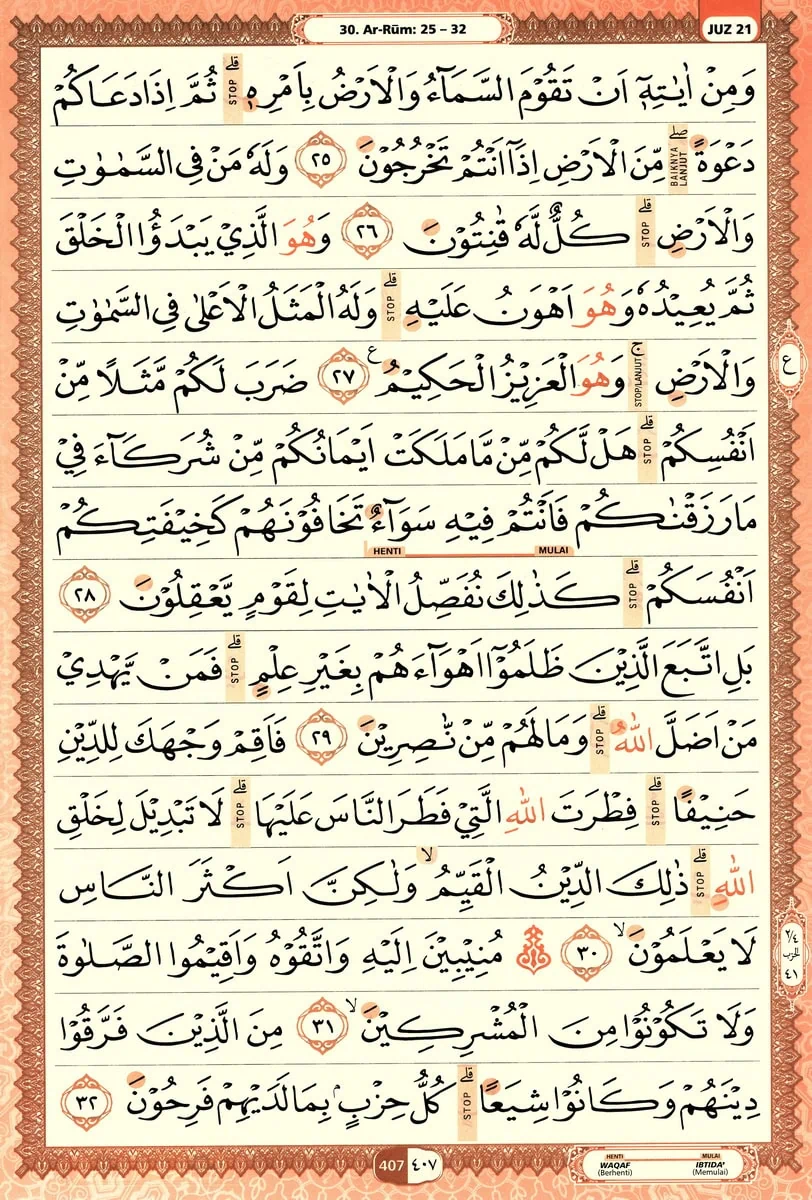 30. Ar-Rūm: 25 – 32
JUZ 21
وَمِنْ اٰيٰتِهٖٓ اَنْ تَقُوْمَ السَّمَاۤءُ وَالْاَرْضُ بِاَمْرِهٖۗ STOP ثُمَّ اِذَا دَعَاكُمْ
دَعْوَةًۖ BAIKNYA LANJUT مِّنَ الْاَرْضِ اِذَآ اَنْتُمْ تَخْرُجُوْنَ ٢٥ وَلَهٗ مَنْ فِى السَّمٰوٰتِ
وَالْاَرْضِۗ STOP كُلٌّ لَّهٗ قٰنِتُوْنَ ٢٦ وَهُوَ الَّذِيْ يَبْدَؤُا الْخَلْقَ
ثُمَّ يُعِيْدُهٗ وَهُوَ اَهْوَنُ عَلَيْهِۗ STOP وَلَهُ الْمَثَلُ الْاَعْلٰى فِى السَّمٰوٰتِ
وَالْاَرْضِۚ STOP/LANJUT وَهُوَ الْعَزِيْزُ الْحَكِيْمُ ع ٢٧ ضَرَبَ لَكُمْ مَّثَلًا مِّنْ
ع
اَنْفُسِكُمْۗ STOP هَلْ لَّكُمْ مِّنْ مَّا مَلَكَتْ اَيْمَانُكُمْ مِّنْ شُرَكَاۤءَ فِيْ
مَا رَزَقْنٰكُمْ فَاَنْتُمْ فِيْهِ سَوَاۤءٌ تَخَافُوْنَهُمْ كَخِيْفَتِكُمْ
HENTI MULAI
اَنْفُسَكُمْۗ STOP كَذٰلِكَ نُفَصِّلُ الْاٰيٰتِ لِقَوْمٍ يَّعْقِلُوْنَ ٢٨
بَلِ اتَّبَعَ الَّذِيْنَ ظَلَمُوْٓا اَهْوَاۤءَهُمْ بِغَيْرِ عِلْمٍۗ STOP فَمَنْ يَّهْدِيْ
مَنْ اَضَلَّ اللّٰهُۗ STOP وَمَا لَهُمْ مِّنْ نّٰصِرِيْنَ ٢٩ فَاَقِمْ وَجْهَكَ لِلدِّيْنِ
حَنِيْفًاۗ STOP فِطْرَتَ اللّٰهِ الَّتِيْ فَطَرَ النَّاسَ عَلَيْهَاۗ STOP لَا تَبْدِيْلَ لِخَلْقِ
اللّٰهِۗ STOP ذٰلِكَ الدِّيْنُ الْقَيِّمُۙ وَلٰكِنَّ اَكْثَرَ النَّاسِ
لَا يَعْلَمُوْنَۙ ٣٠ ۞ مُنِيْبِيْنَ اِلَيْهِ وَاتَّقُوْهُ وَاَقِيْمُوا الصَّلٰوةَ
٢/٤
الحزب
٤١
وَلَا تَكُوْنُوْا مِنَ الْمُشْرِكِيْنَۙ ٣١ مِنَ الَّذِيْنَ فَرَّقُوْا
دِيْنَهُمْ وَكَانُوْا شِيَعًاۗ STOP كُلُّ حِزْبٍۢ بِمَا لَدَيْهِمْ فَرِحُوْنَ ٣٢
407 ٤٠٧
HENTI MULAI
WAQAF IBTIDA'
(Berhenti) (Memulai)